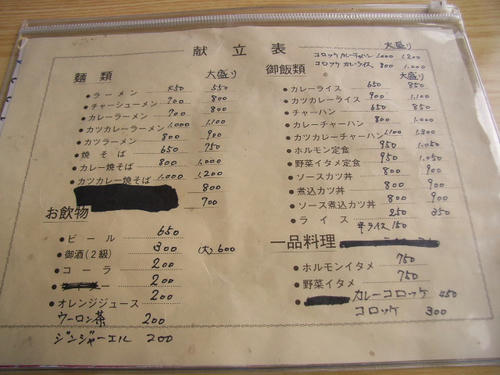 献立表
大盛り
コロッケカレーチャハン 1,000 1,200
コロッケカレーライス 800 1,000
麺類 大盛り
●ラーメン 450 550
●チャーシューメン 700 800
●カレーラーメン 700 800
●カツカレーラーメン 1,000 1,100
●カツラーメン 800 900
●焼そば 650 750
●カレー焼そば 800 1,000
●カツカレー焼そば 1,000 1,200
800
700
お飲物
●ビール 650
●御酒(2級) 300 (大)600
●コーラ 200
ー 200
●オレンジジュース 200
ウーロン茶 200
ジンジャーエル 200
御飯類 大盛り
●カレーライス 650 850
●カツカレーライス 900 1,100
●チャーハン 650 850
●カレーチャーハン 800 1,000
●カツカレーチャーハン 1,100 1,300
●ホルモン定食 950 1,050
●野菜イタメ定食 950 1,050
●ソースカツ丼 800 900
●煮込カツ丼 800 900
●ソース煮込カツ丼 800 900
●ライス 250 350
半ライス 150
一品料理
●ホルモンイタメ 750
●野菜イタメ 750
カレーコロッケ 450
コロッケ 300